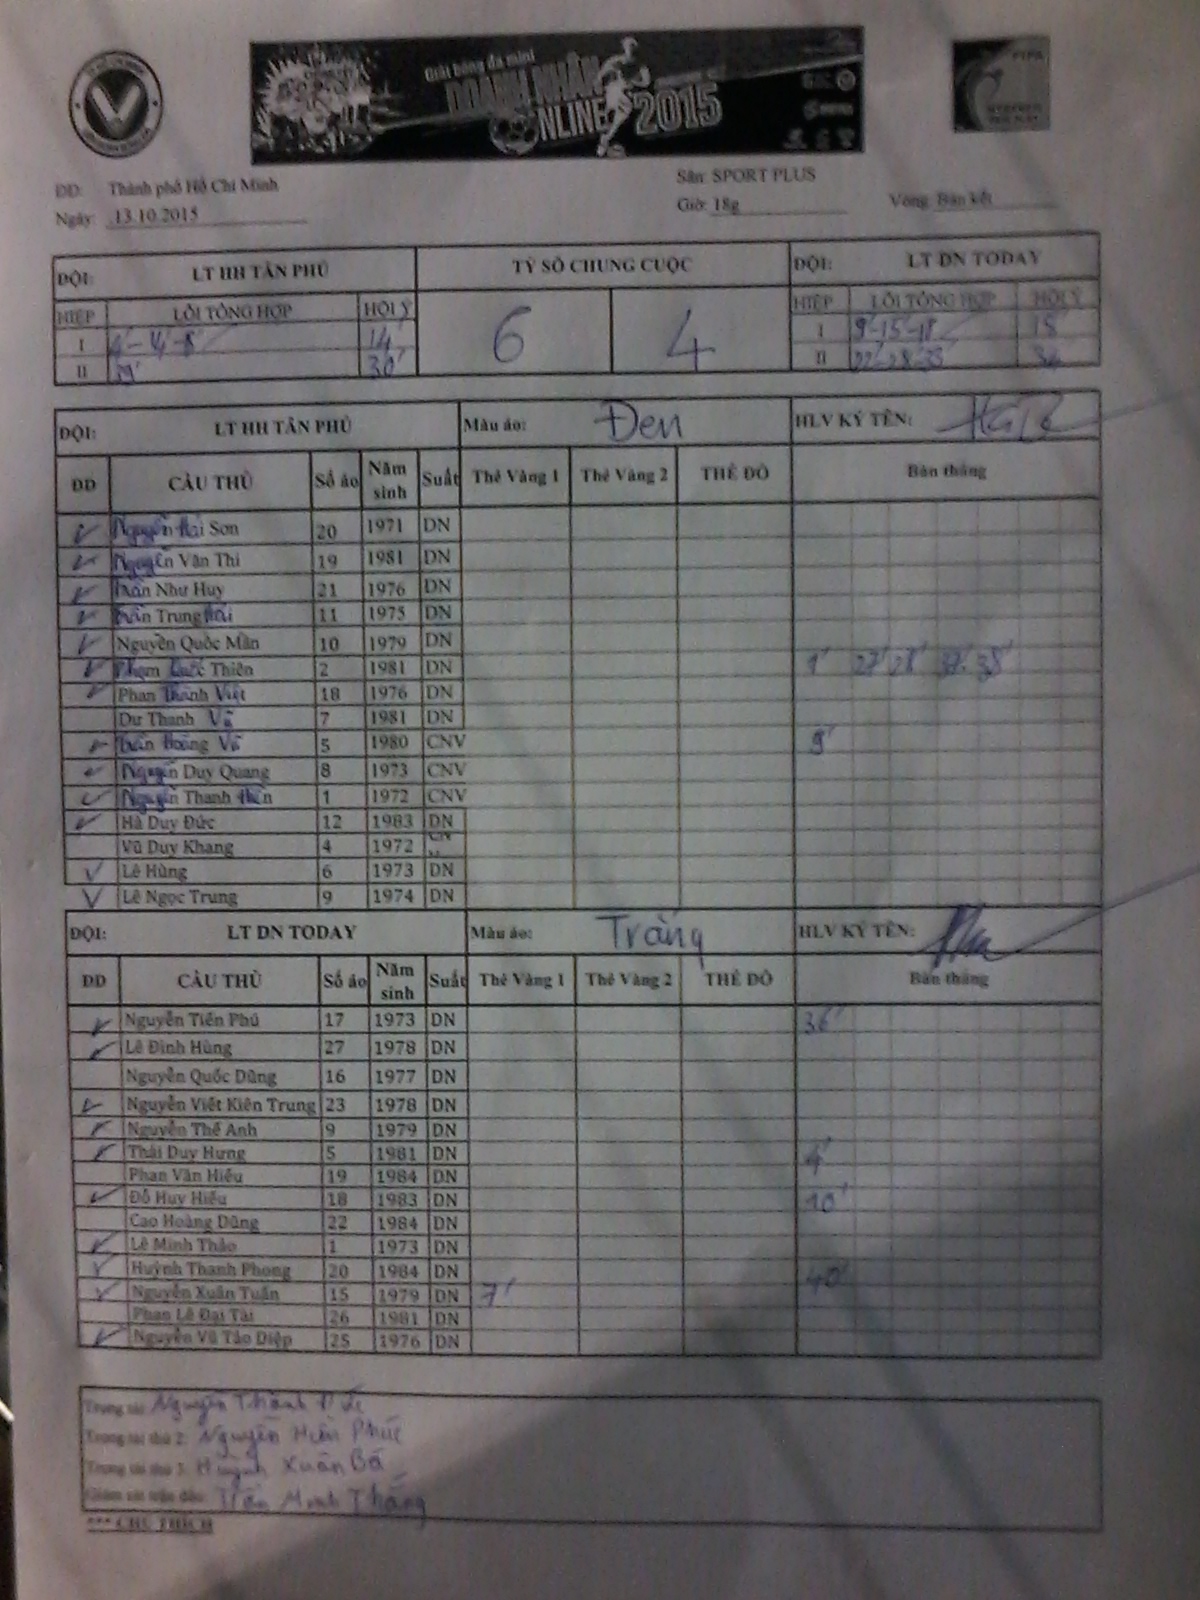 Giải bóng đá mini
DOANH NHÂN
ONLINE 2015
ĐĐ: Thành phố Hồ Chí Minh
Sân: SPORT PLUS
Ngày: 13.10.2015
Giờ: 18g
Vòng: Bán kết
ĐỘI: LT HH TÂN PHÚ TỶ SỐ CHUNG CUỘC ĐỘI: LT DN TODAY
HIỆP LỖI TỔNG HỢP HỘI Ý 6 4 HIỆP LỖI TỔNG HỢP HỘI Ý
I 4'-4'-8' 14' I 9'-15'-18' 15'
II 30' II 22'-28'-33' 34
ĐỘI: LT HH TÂN PHÚ Màu áo: Đen HLV KÝ TÊN:
ĐD CẦU THỦ Số áo Năm sinh Suất Thẻ Vàng 1 Thẻ Vàng 2 THẺ ĐỎ Bàn thắng
Nguyễn Hải Sơn 20 1971 DN
Nguyễn Văn Thi 19 1981 DN
Trần Như Huy 21 1976 DN
Trần Trung Hải 11 1975 DN
Nguyễn Quốc Mân 10 1979 DN
Phạm Quốc Thiên 2 1981 DN 1' 27' 28' 37' 38'
Phan Thành Việt 18 1976 DN
Dư Thanh Vũ 7 1981 DN
Trần Hoàng Vũ 5 1980 CNV 9'
Nguyễn Duy Quang 8 1973 CNV
Nguyễn Thanh Hiền 1 1972 CNV
Hà Duy Đức 12 1983 DN
Vũ Duy Khang 4 1972 CNV
Lê Hùng 6 1973 DN
Lê Ngọc Trung 9 1974 DN
ĐỘI: LT DN TODAY Màu áo: Trắng HLV KÝ TÊN:
ĐD CẦU THỦ Số áo Năm sinh Suất Thẻ Vàng 1 Thẻ Vàng 2 THẺ ĐỎ Bàn thắng
Nguyễn Tiến Phú 17 1973 DN 36'
Lê Đình Hùng 27 1978 DN
Nguyễn Quốc Dũng 16 1977 DN
Nguyễn Viết Kiên Trung 23 1978 DN
Nguyễn Thế Anh 9 1979 DN
Thái Duy Hưng 5 1981 DN 4'
Phan Văn Hiếu 19 1984 DN
Đỗ Huy Hiếu 18 1983 DN 10'
Cao Hoàng Dũng 22 1984 DN
Lê Minh Thảo 1 1973 DN
Huỳnh Thanh Phong 20 1984 DN 40'
Nguyễn Xuân Tuấn 15 1979 DN 7'
Phan Lê Đại Tài 26 1981 DN
Nguyễn Vũ Tảo Diệp 25 1976 DN
Trọng tài: Nguyễn Thành
Trọng tài thứ 2: Nguyễn Hiền Phúc
Trọng tài thứ 3: Huỳnh Xuân Bá
Giám sát trận đấu: Trần Minh Thắng
*** CHÚ THÍCH